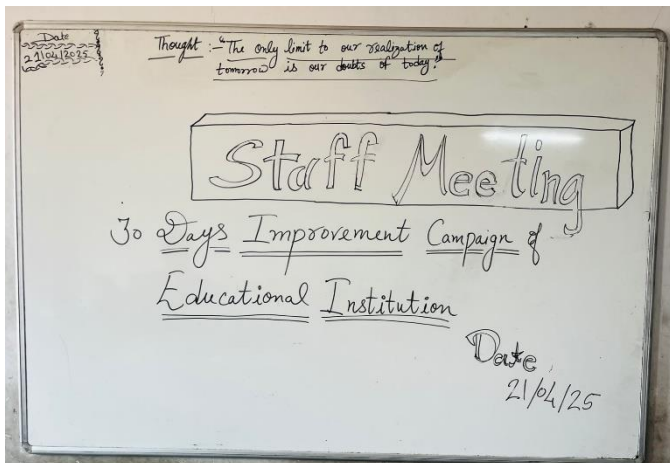 Date
21/04/2025
Thought :- "The only limit to our realization of
tomorrow is our doubts of today."
Staff Meeting
30 Days Improvement Campaign of
Educational Institution
Date
21/04/25